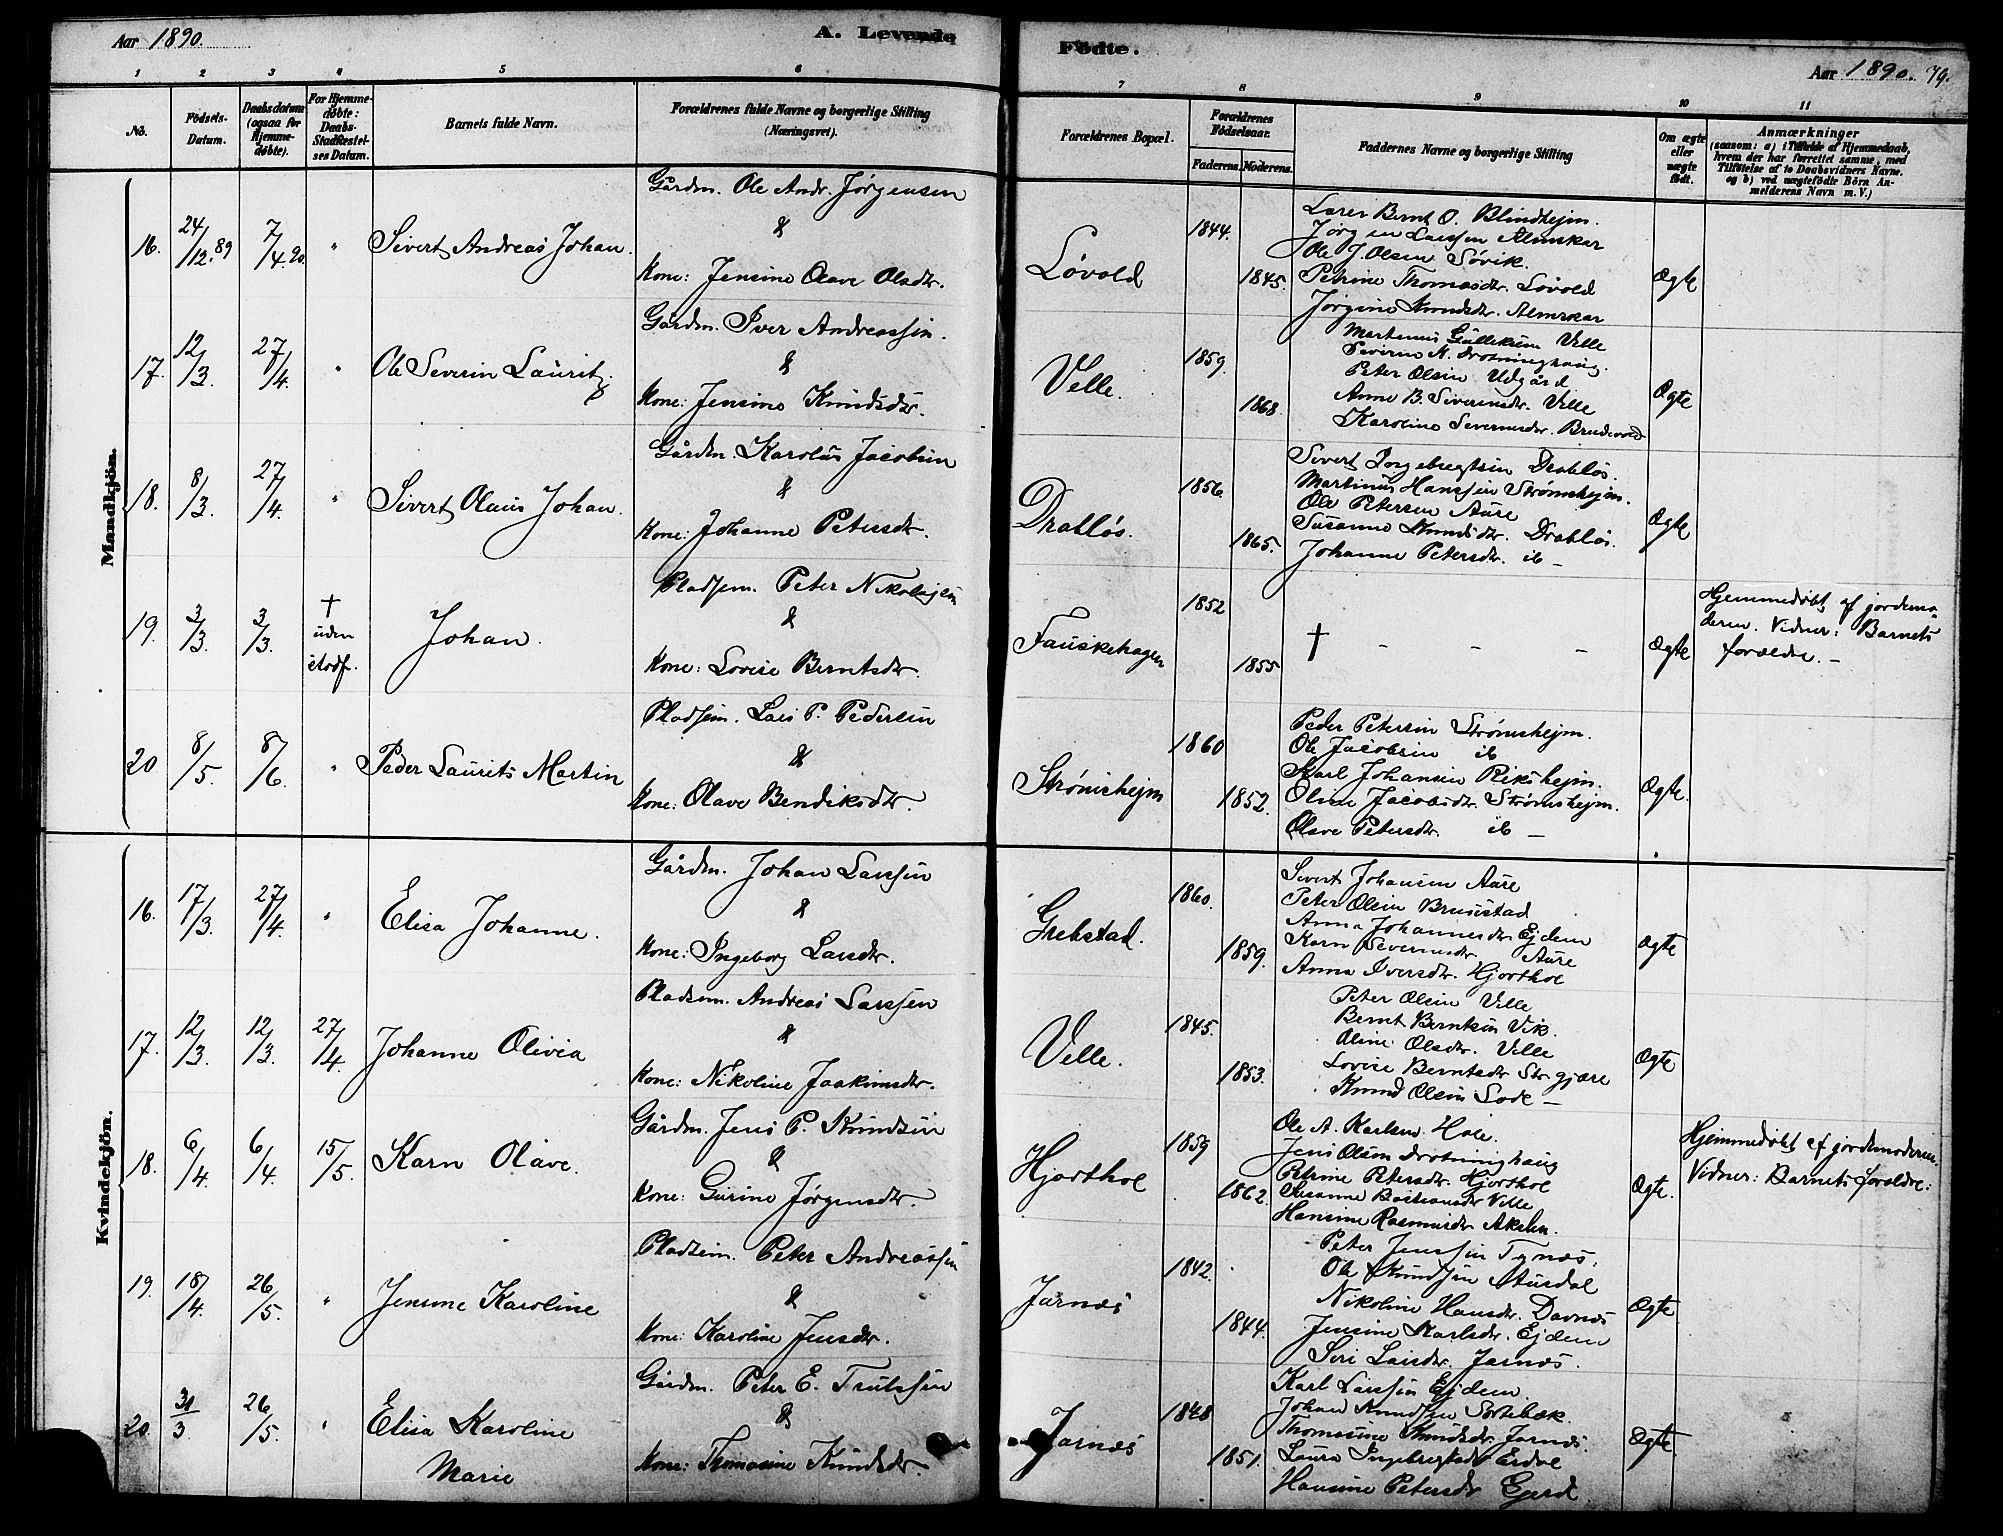 Aar 1890.
A. Levende
Födte.
Aar 1890. 79.
1 2 3 4 5 6 7 8 9 10 11
No.
Födsels-
Datum.
Daabsdatum
(ogsaa for
Hjemme-
døbte).
For Hjemme-
døbte:
Daabs-
Stadfæstel-
ses Datum.
Barnets fulde Navn.
Forældrenes fulde Navne og borgerlige Stilling
(Næringsvei).
Forældrenes Bopæl.
Forældrenes
Fødselsaar.
Faderens. Moderens.
Faddernes Navne og borgerlige Stilling
Om ægte
eller
uægte
født.
Anmærkninger
(saasom: a) i Tilfælde af Hjemmedaab,
hvem der har forrettet samme, med
Tilføielse af to Daabsvidners Navne.
og b) ved uægtefødte Börn An-
melderens Navn m. V.)
Mandkjön.
16. 24/12.89 7/4.90 " Sivert Andreas Johan.
Gårdm. Ole Andr. Jørgensen
&
Kone: Jensine Olave Olsdtr.
Løvold
1844.
1845.
Bernt O. Blindhejm.
Jørgen Larssen Almskar
Ole J. Olsen Søvik.
Petrine Thomasdtr. Løvold
Jørgine Knudsdtr. Almskar
Ægte
17. 12/3. 27/4. " Ole Severin Lauritz.
Gårdm. Iver Andreassen.
&
Kone: Jensine Knudsdtr.
Velle.
1859.
1868
Martinus Velle
Peter Olsen Udgård
Anne B. Siverinsdtr. Velle
Karoline Severinsdtr. Brudevold
Ægte
18. 8/3. 27/4. " Sivert Olaus Johan.
Gårdm. Karolus Jacobsen
&
Kone: Johanne Petersdtr.
Drabløs.
1856.
1865.
Sivert Drabløs.
Martinus Hanssen Strømshejm.
Ole Petersen Aure
Susanne Knudsdtr. Drabløs.
Johanne Petersdtr. ib –
Ægte
19. 3/3. 3/3. † uden stadf. Johan.
Pladsem. Peter Nikolajsen
&
Kone: Lovise Berntsdtr.
Fauskehagen
1852
1855
† - - -
Ægte
Hjemmedøbt af jordemo-
deren. Vidner: Barnets
forældre. –
20 8/5. 8/6. " Peder Laurits Martin
Pladsem. Lars P. Pedersen
&
Kone: Olave Bendiksdtr.
Strømshejm
1860
1852.
Peder Petersen Strømshejm.
Ole Jacobsen ib
Karl Johansen Rikshejm.
Oline Jacobsdtr. Strømshejm.
Olave Petersdtr. ib –
Ægte.
Kvindekjön.
16. 17/3. 27/4. " Elisa Johanne.
Gårdm. Johan Larssen
&
Kone: Ingeborg Larsdtr.
Grebstad.
1860.
1859.
Sivert Johansen Aure
Peter Olsen Brusestad
Anna Johannesdtr Ejdem
Karn Severinsdtr. Aure
Anna Iversdtr. Hjorthol
Ægte
17. 12/3. 12/3. 27/4. Johanne Olivia
Pladsem. Andreas Larssen
&
Kone: Nikoline Joakimsdtr.
Velle.
1845.
1853.
Peter Olsen Velle
Bernt Berntsen Vik.
Oline Olsdtr. Velle
Lovise Berntsdtr
Knud Olsen
Ægte
18. 6/4. 6/4. 15/5. Karn Olave.
Gårdm. Jens P. Knudsen
&
Kone: Gurine Jørgensdtr.
Hjorthol
1859
1862.
Ole A. Karlsen Hole.
Jens Olsen Drotninghaug
Petrine Petersdtr. Hjorthol
Susanne Bastiansdtr Velle
Hansine Rasmusdtr
Ægte.
Hjemmedøbt af jordemoderen.
Vidner: Barnets forældre:
19. 18/4. 26/5. " Jensine Karoline
Pladsem. Peter Andreassen
&
Kone: Karoline Jensdtr.
Jarnes
1842.
1844.
Peter Jenssen Tynes.
Ole Knudsen
Nikoline Hansdtr.
Jensine Karlsdtr. Ejdem
Siri Larsdtr. Jarnes.
Ægte
20. 31/3 26/5. " Elisa Karoline
Marie
Gårdm. Peter E. Trulssen
&
Kone: Thomasine Knudsdtr.
Jarnes
1848
1851.
Karl Larssen Ejdem.
Johan Knudsen Sortebæk.
Thomasine Knudsdtr. Jarnes.
Laura
Hansine Petersdtr Gjerd
Ægte